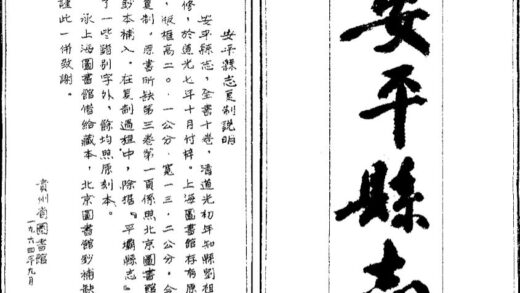 安平縣志
安平縣志复制説明
安平縣志，全書十卷，清道光初年知縣劉祖
修，於道光七年十月付梓。上海圖書館存有原
，板框高二〇．一公分，寬一三．二公分，今
复制，原書所缺第三卷第一頁係照北京圖書館
鈔本補入。在复制過程中，除据『平壩縣志』
了一些錯別字外，餘均照原刻本。
承上海圖書館借給藏本，北京圖書館鈔補缺
謹此一併致謝。
貴州省圖書館
一九六四年九月